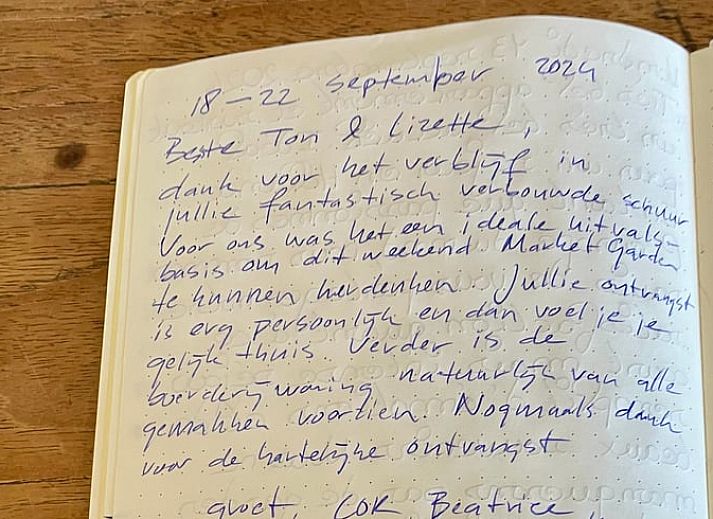 18 - 22 september 2024
Beste Ton & Lizette,
dank voor het verblijf in
jullie fantastisch verbouwde schuur
Voor ons was het een ideale uitvals-
basis om dit weekend Market Garden
te kunnen herdenken. Jullie ontvangst
is erg persoonlijk en dan voel je je
gelijk thuis. Verder is de
boerderijwoning natuurlijk van alle
gemakken voorzien. Nogmaals dank
voor de hartelijke ontvangst
groet, COR Beatrice